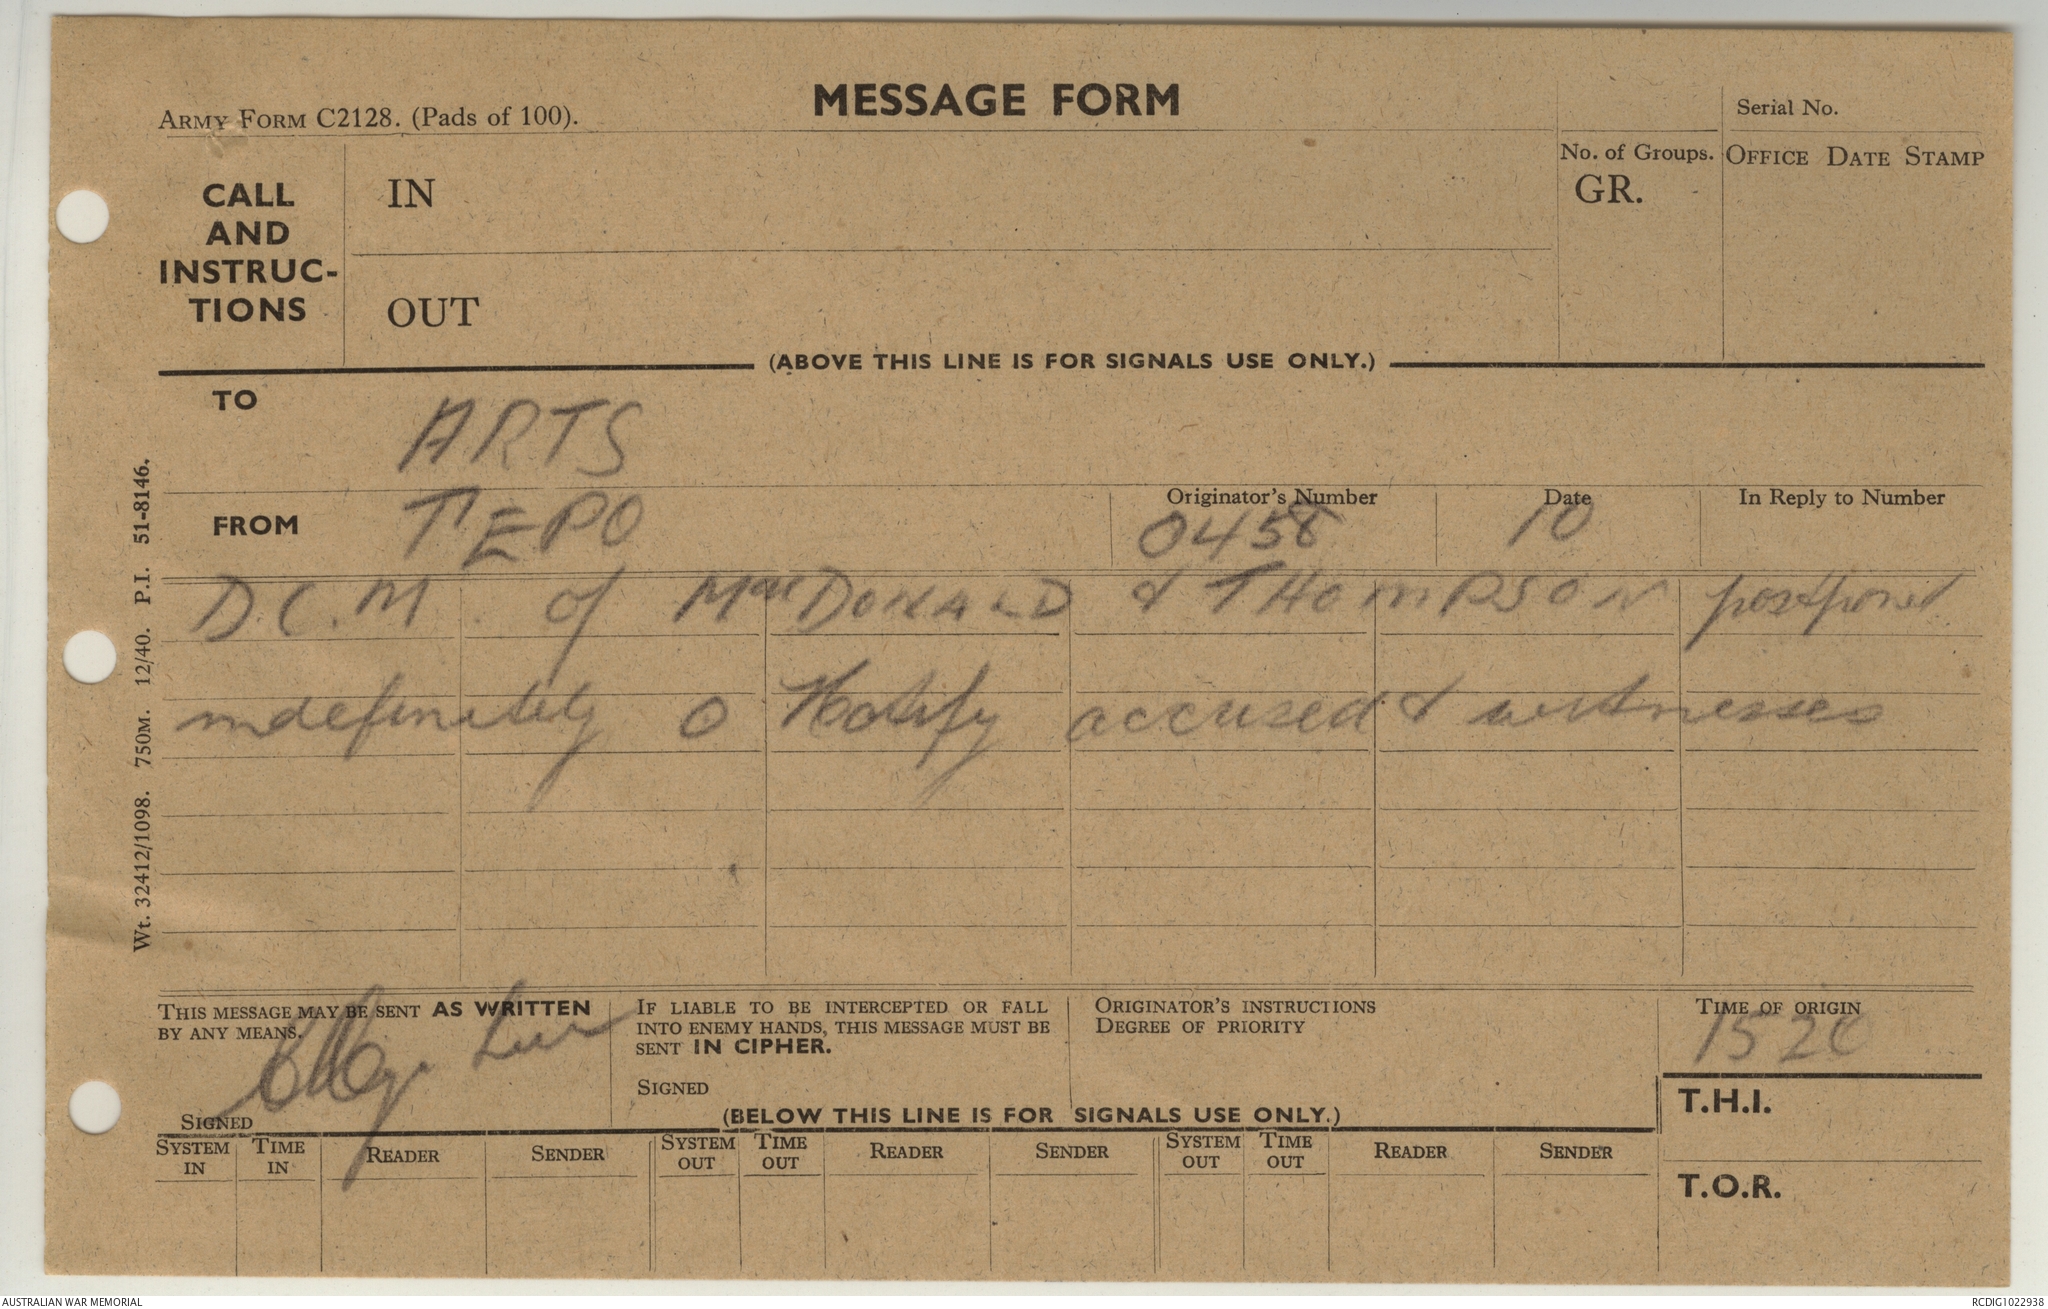 MESSAGE FORM
ARMY FORM C2128. (Pads of 100).
Serial No.
No. of Groups.
GR.
OFFICE DATE STAMP
CALL
AND
INSTRUC-
TIONS
IN
OUT
(ABOVE THIS LINE IS FOR SIGNALS USE ONLY.)
TO
ARTS
FROM
TEPO
Originator's Number
0458
Date
10
In Reply to Number
D.C.M. of MacDONALD & THOMPSON postponed
indefinitely o Notify accused & witnesses
Wt. 32412/1098. 750M. 12/40. P.I. 51-8146.
THIS MESSAGE MAY BE SENT AS WRITTEN
BY ANY MEANS.
SIGNED
IF LIABLE TO BE INTERCEPTED OR FALL
INTO ENEMY HANDS, THIS MESSAGE MUST BE
SENT IN CIPHER.
SIGNED
ORIGINATOR'S INSTRUCTIONS
DEGREE OF PRIORITY
TIME OF ORIGIN
1520
T.H.I.
T.O.R.
(BELOW THIS LINE IS FOR SIGNALS USE ONLY.)
SYSTEM IN TIME IN READER SENDER SYSTEM OUT TIME OUT READER SENDER SYSTEM OUT TIME OUT READER SENDER
AUSTRALIAN WAR MEMORIAL
RCDIG1022938